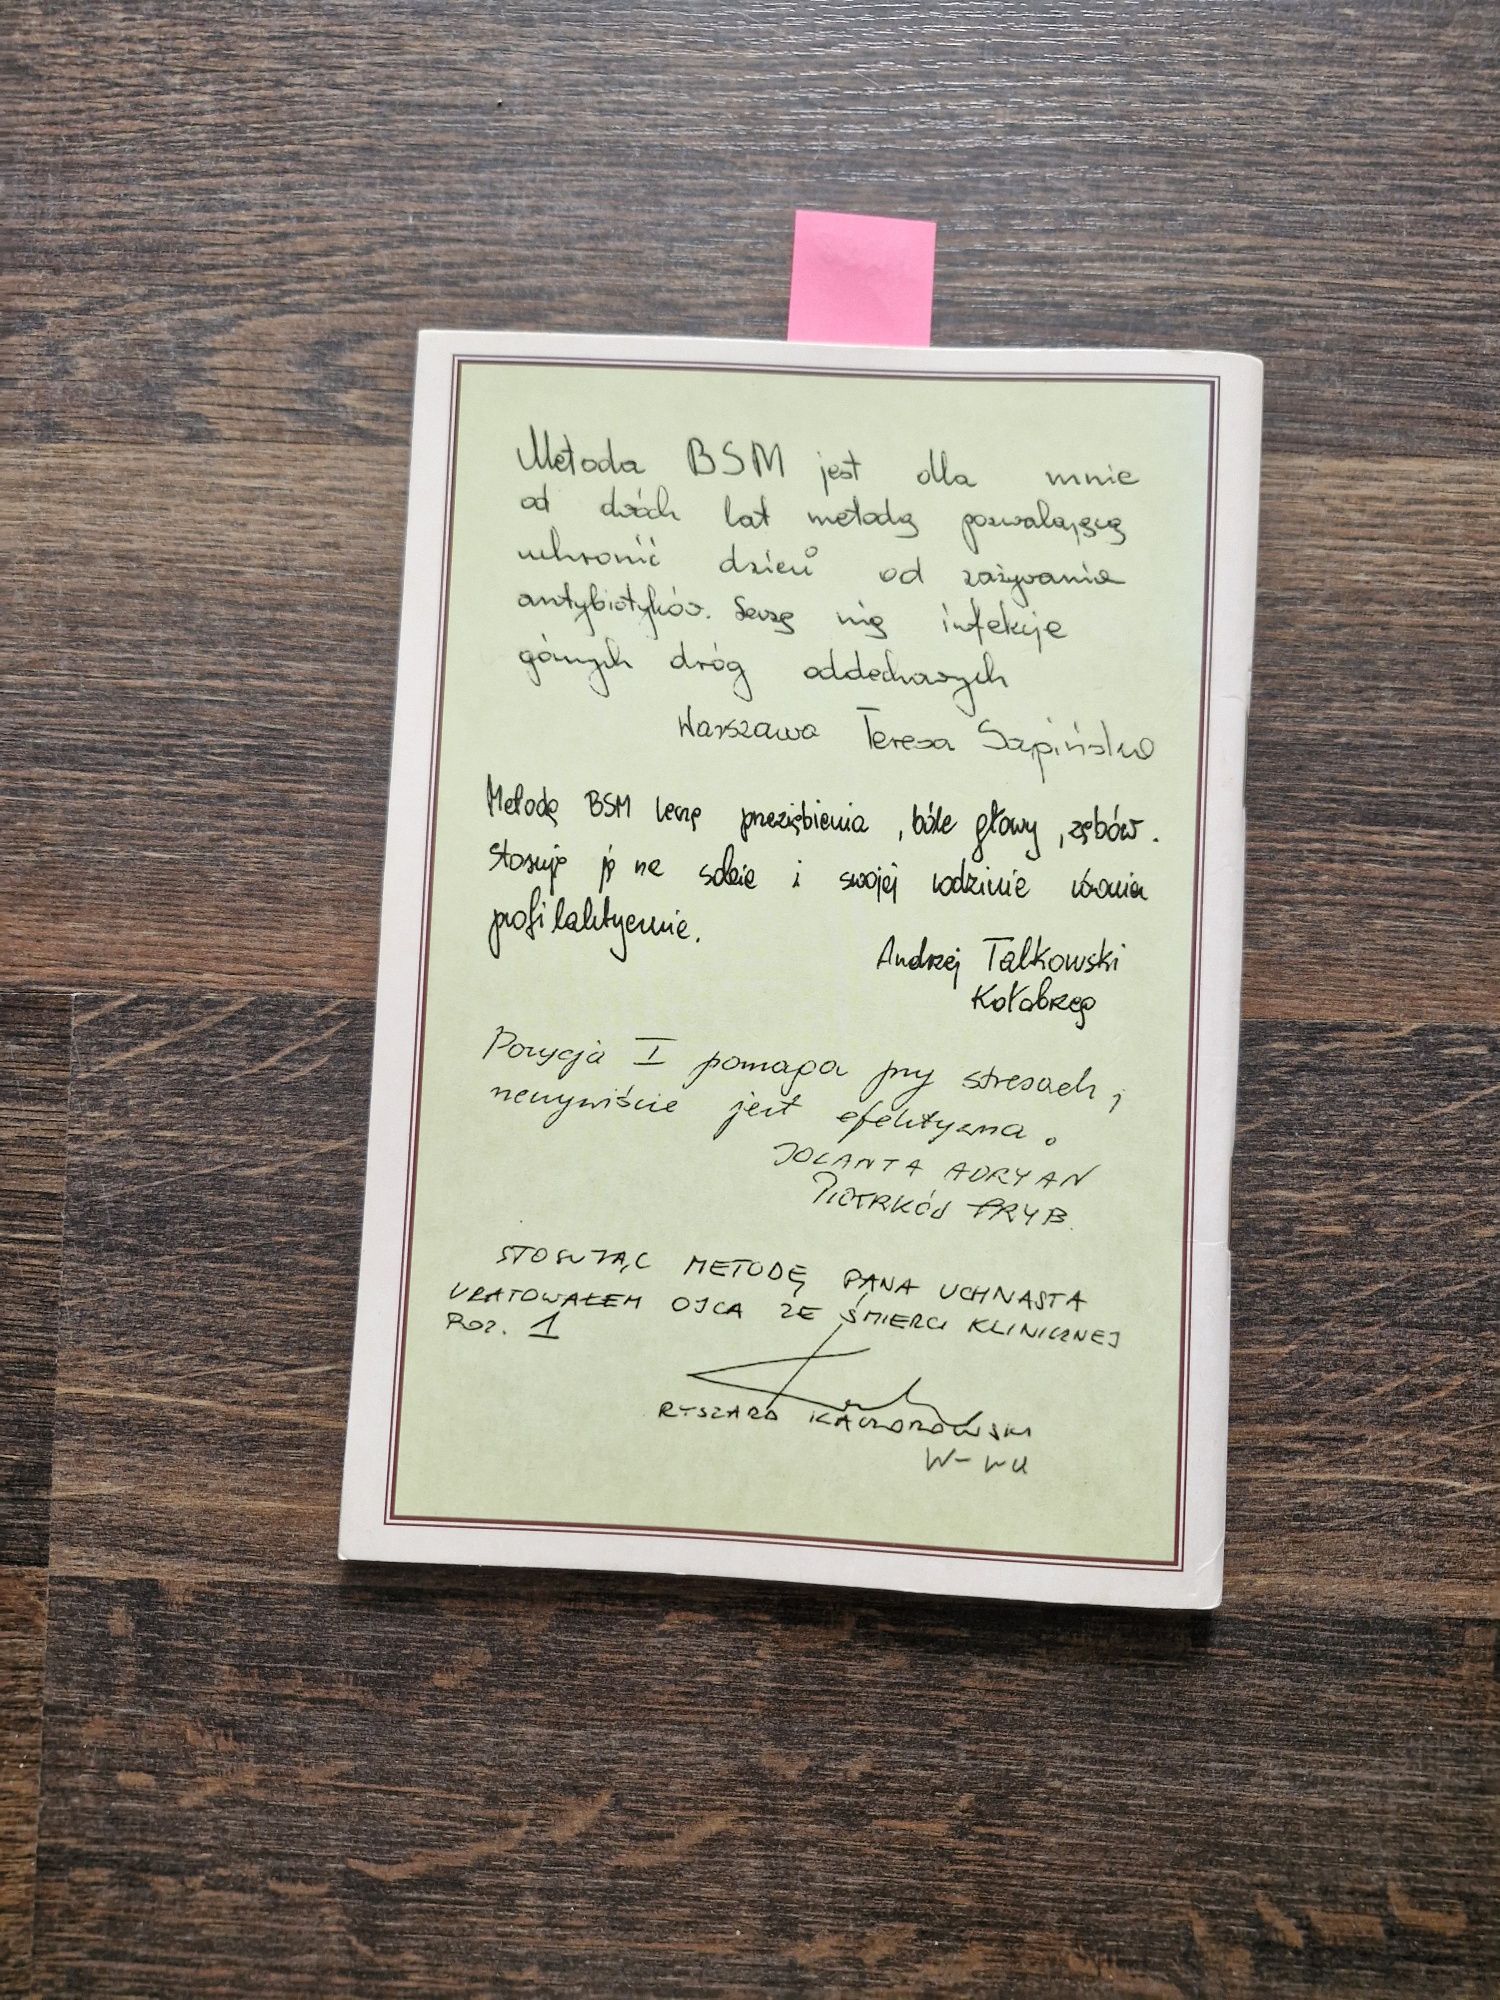 Metoda BSM jest dla mnie
od dwóch lat metodą pozwalającą
uchronić dzieci od zażywania
antybiotyków. Leczę nią infekcje
górnych dróg oddechowych
Warszawa Teresa Sapińska
Metodą BSM leczę przeziębienia, bóle głowy, zębów.
Stosuję ją na sobie i swojej rodzinie również
profilaktycznie.
Andrzej Talkowski
Kołobrzeg
Pozycja I pomaga przy stresach,
rzeczywiście jest efektyczna.
JOLANTA ADRYAN
PIOTRKÓW TRYB.
STOSUJĄC METODĘ PANA UCHNASTA
URATOWAŁEM OJCA ZE ŚMIERCI KLINICZNEJ
POZ. 1
RYSZARD KACZOROWSKI
W-WA